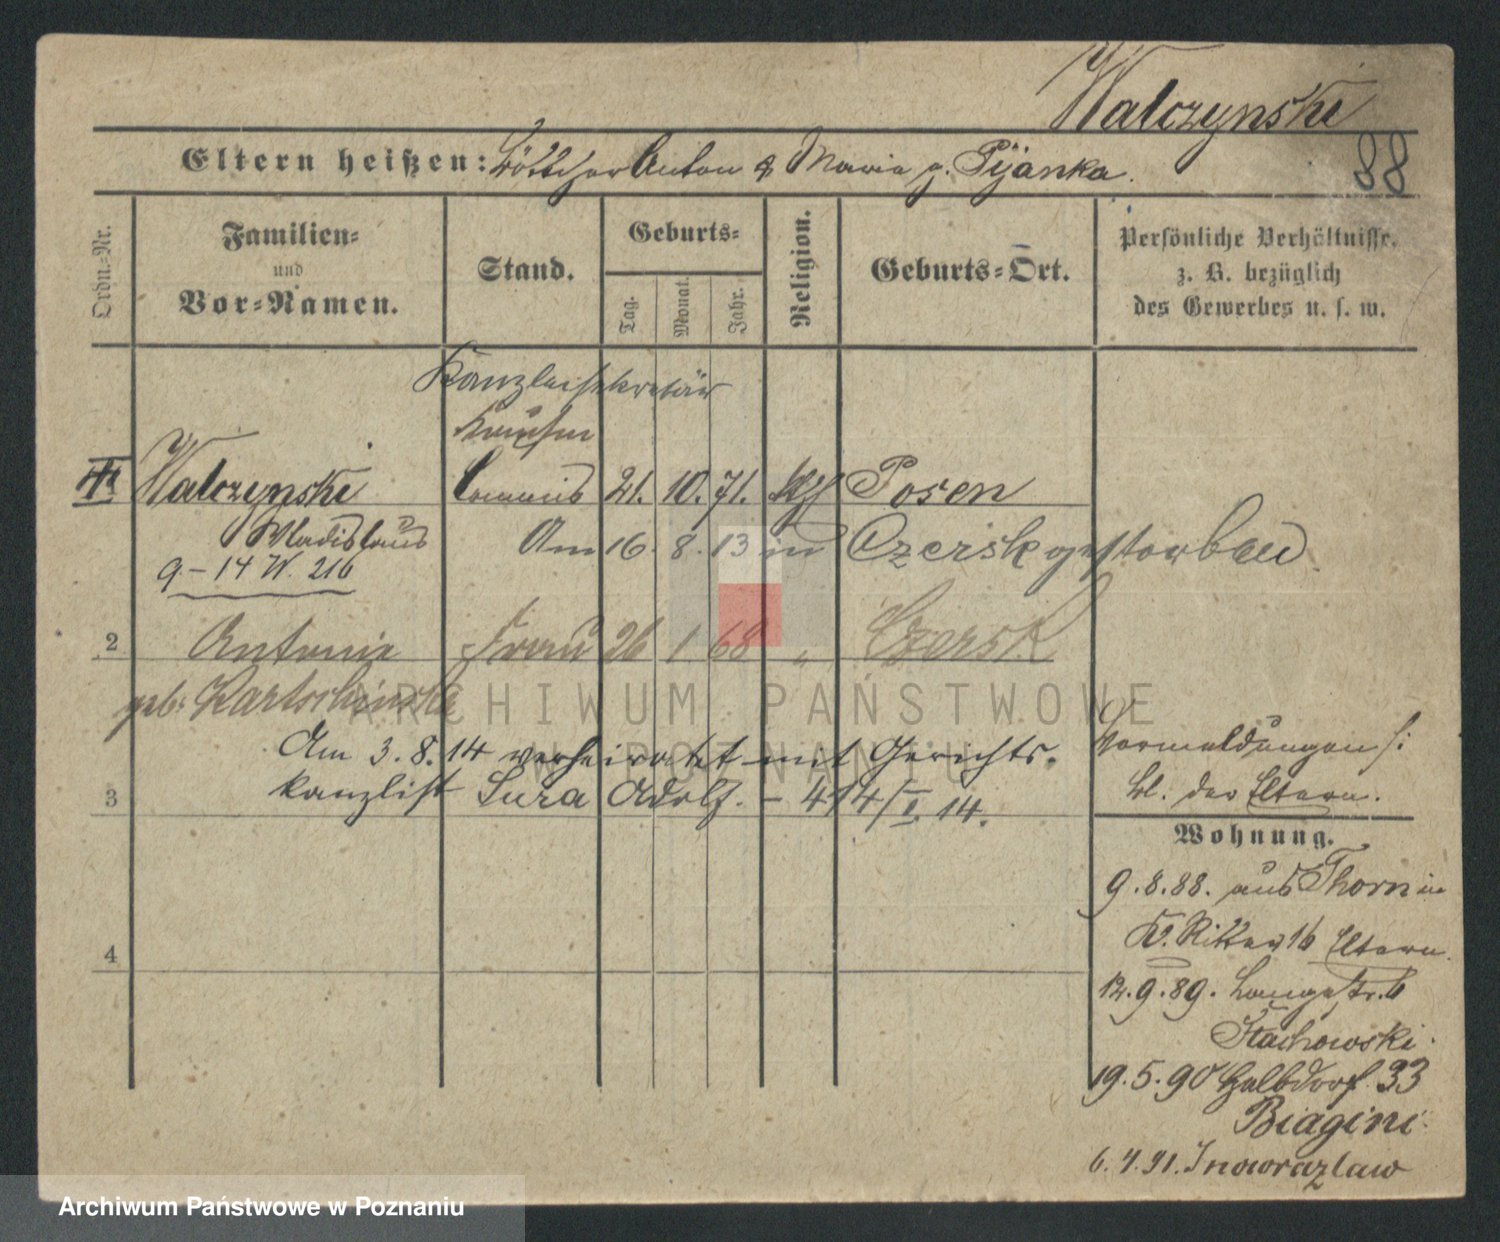 Walczynski
88
Eltern heißen: Böttcher Anton & Maria g. Pijanka.
Ordn.-Nr.
Familien-
und
Vor-Namen.
Stand.
Geburts-
Tag.
Monat.
Jahr.
Religion.
Geburts-Ort.
Persönliche Verhältnisse,
z. B. bezüglich
des Gewerbes u. s. w.
Kanzleisekretär
Walczynski Commis 21. 10. 71. kth Posen
Wladislaus Am 16. 8. 13 in Czersk gestorben.
9-14 W. 216
2 Antonie Frau 26 1 68 " Czersk
geb. Kartschinska
Am 3. 8. 14 verheiratet mit Gerichts-
3 kanzlist Sura Adolf. - 414/I. 14.
Vormeldungen s:
bl. der Eltern.
Wohnung.
9.8.88. aus Thorn in
Kl. Ritter 16 Eltern.
4
12.9.89. Langestr. 6
Stachowski.
19.5.90 Halbdorf. 33
Biagini.
6.4.91. Inowrazlaw
ARCHIWUM PAŃSTWOWE
W POZNANIU
Archiwum Państwowe w Poznaniu